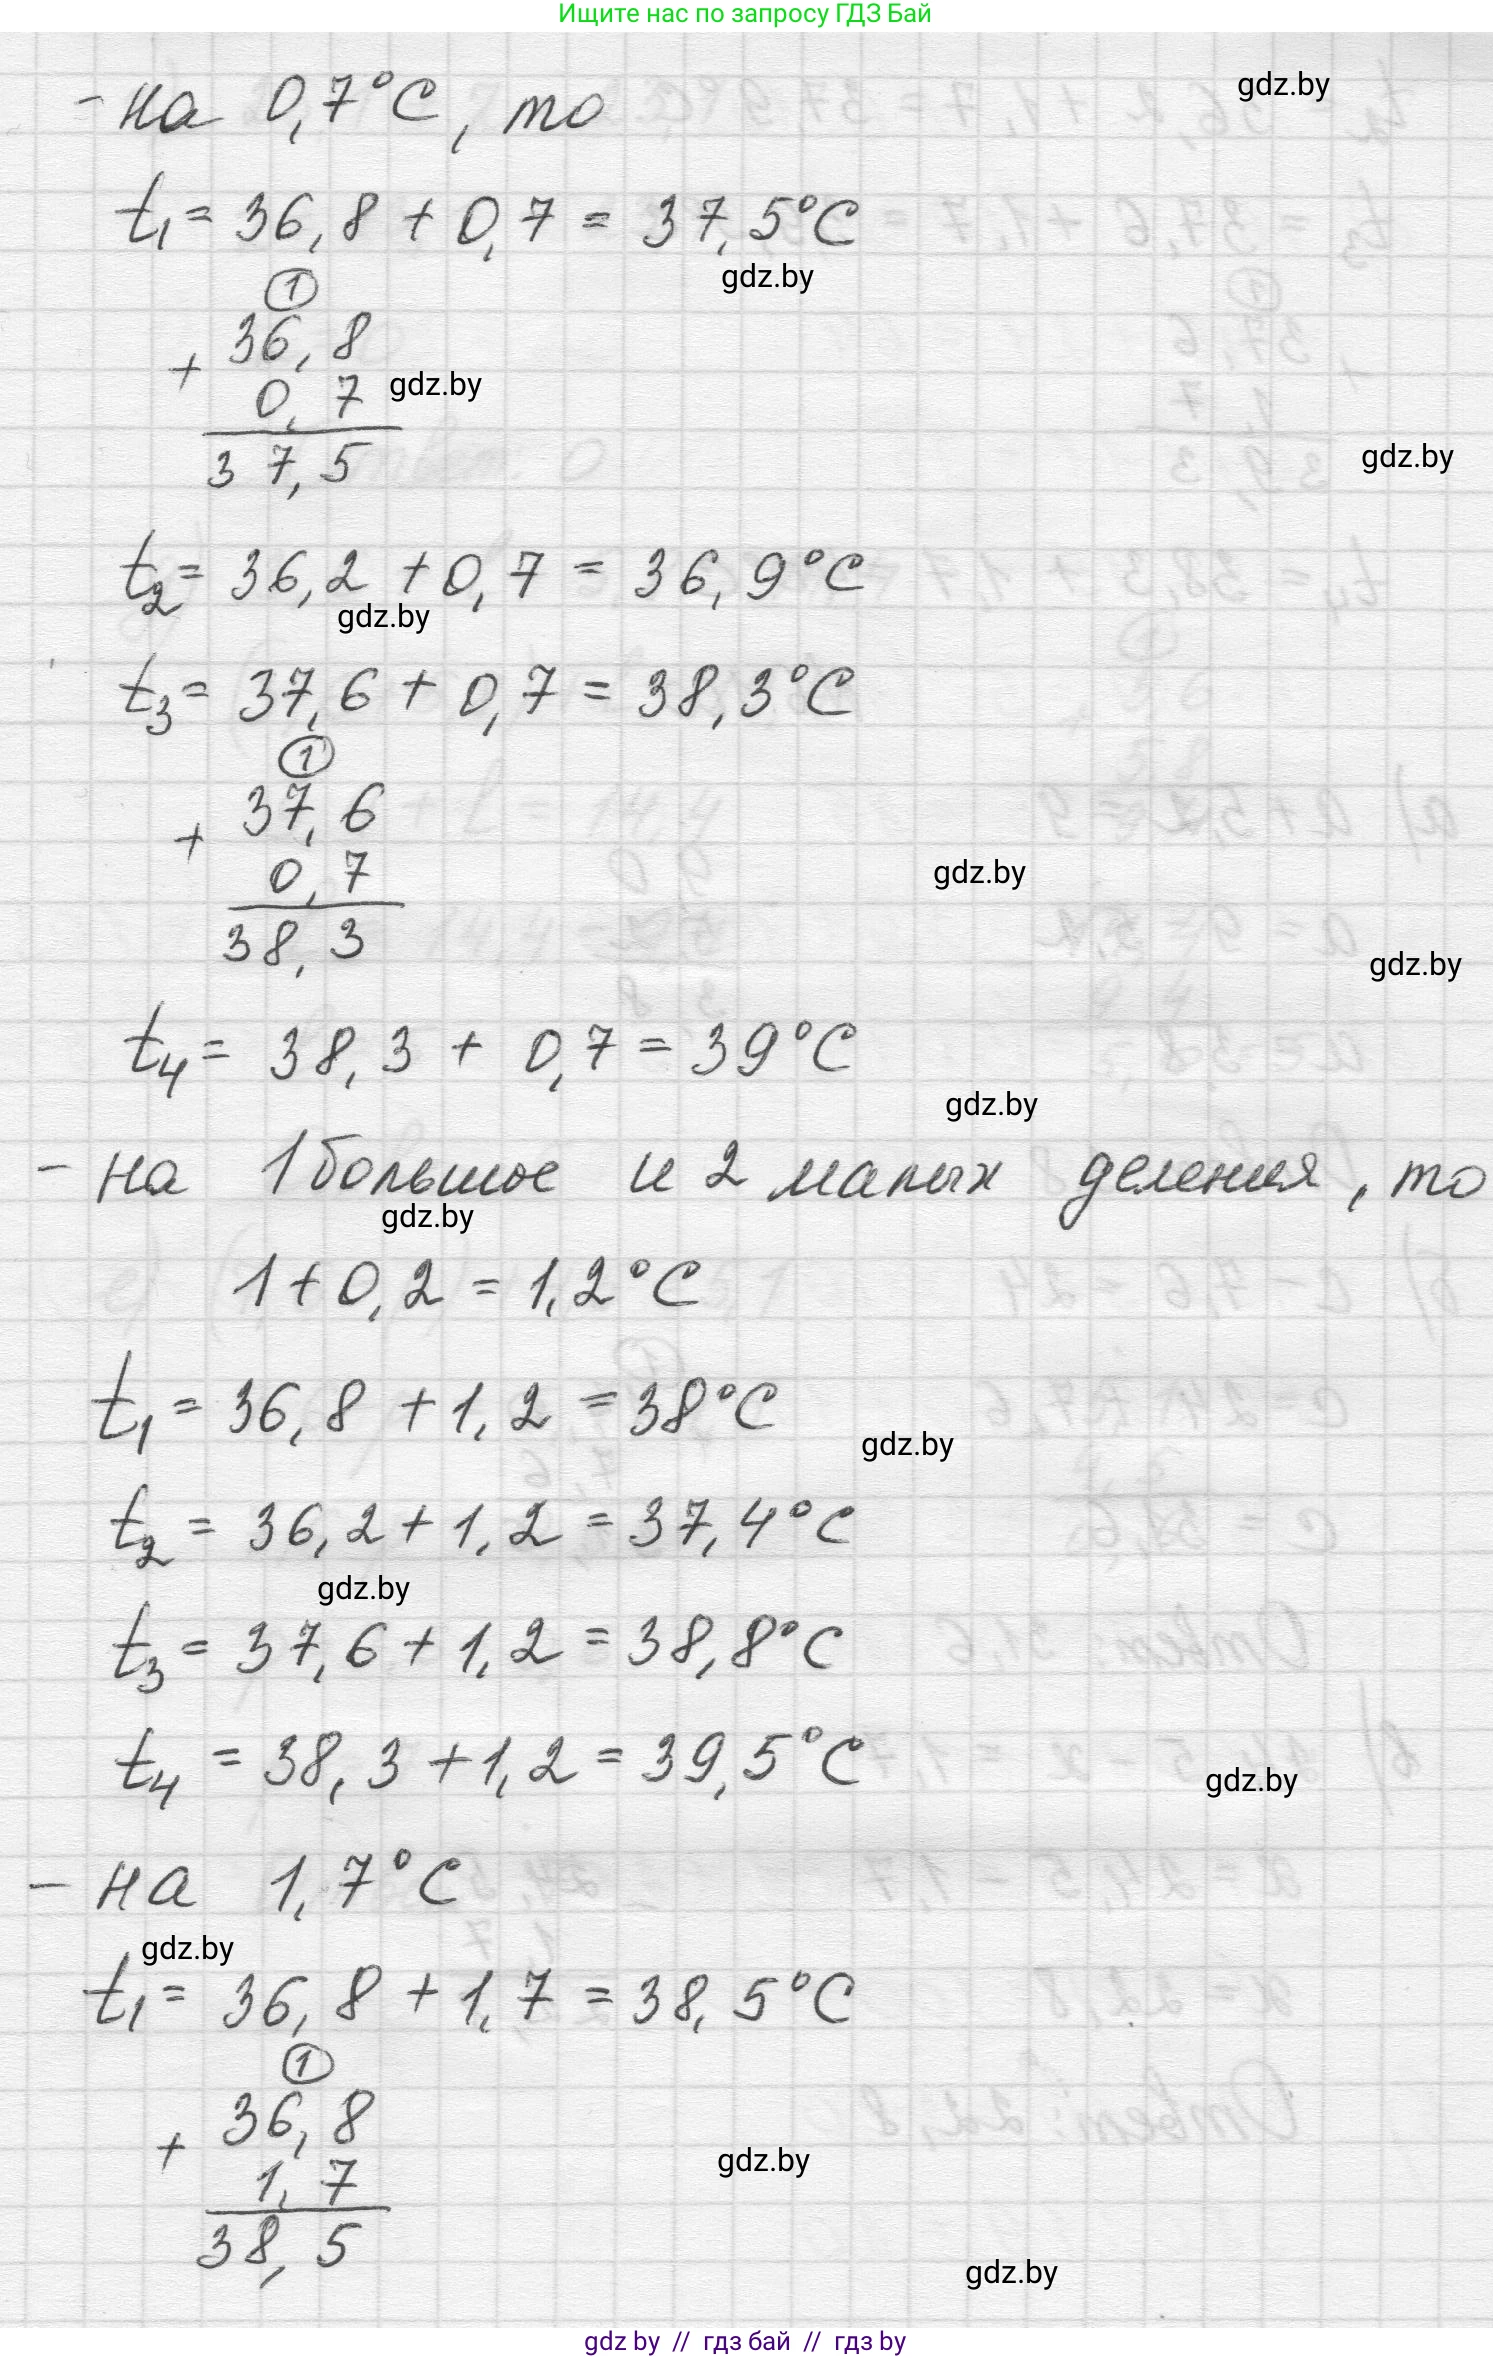 Ищите нас по запросу ГДЗ Бай
gdz.by
- на 0,7°C, то
t₁ = 36,8 + 0,7 = 37,5°C
gdz.by
①
36,8
+
0,7 gdz.by
37,5
gdz.by
t₂ = 36,2 + 0,7 = 36,9°C
gdz.by
t₃ = 37,6 + 0,7 = 38,3°C
①
37,6
+
0,7
gdz.by
38,3
gdz.by
t₄ = 38,3 + 0,7 = 39°C
gdz.by
- на 1 большое и 2 малых деления, то
gdz.by
1 + 0,2 = 1,2°C
t₁ = 36,8 + 1,2 = 38°C
gdz.by
t₂ = 36,2 + 1,2 = 37,4°C
gdz.by
t₃ = 37,6 + 1,2 = 38,8°C
t₄ = 38,3 + 1,2 = 39,5°C
gdz.by
- на 1,7°C
gdz.by
t₁ = 36,8 + 1,7 = 38,5°C
①
36,8
+
1,7
gdz.by
38,5
gdz.by
gdz by // гдз бай // гдз by